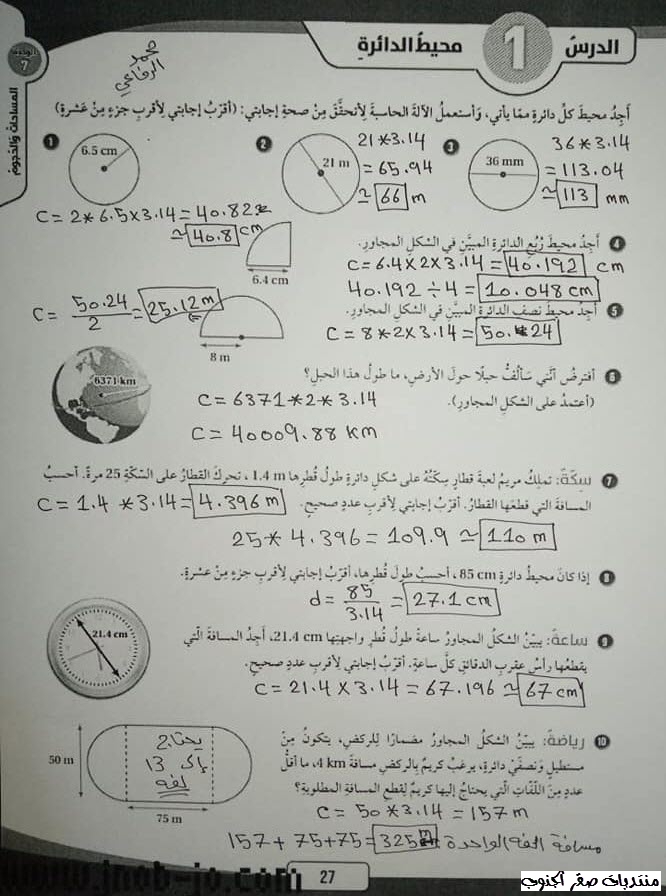 الدرس 1 محيط الدائرة
الوحدة 7
المساحات والحجوم
محمد الرفاعي
أَجِدُ محيطَ كلِّ دائرةٍ ممّا يأتي، وأستعملُ الآلةَ الحاسبةَ لأتحقَّقَ مِنْ صحةِ إجابتي: (أقرّبُ إجابتي لأقربِ جزءٍ مِنْ عَشَرةٍ)
1 6.5 cm
C = 2*6.5×3.14=40.82
≃ 40.8 cm
2 21 m
21*3.14
= 65.94
≃ 66 m
3 36 mm
36*3.14
= 113.04
≃ 113 mm
4 أَجِدُ محيطَ رُبُعِ الدائرةِ المبيَّنِ في الشكلِ المجاورِ.
6.4 cm
C = 6.4×2×3.14 = 40.192 cm
40.192 ÷ 4 = 10.048 cm
5 أَجِدُ محيطَ نصفِ الدائرةِ المبيَّنِ في الشكلِ المجاورِ.
8 m
C = 8*2×3.14 = 50.24
C = 50.24/2 = 25.12 m
6 أفترضُ أنَّني سألُفُّ حبلًا حولَ الأرضِ، ما طولُ هذا الحبلِ؟
(أعتمدُ على الشكلِ المجاورِ).
6371 km
C = 6371*2*3.14
C = 40009.88 KM
7 سِكّةٌ: تملِكُ مريمُ لعبةَ قطارٍ سِكّتُهُ على شكلِ دائرةٍ طولُ قُطرِها 1.4 m، تحركَ القطارُ على السّكّةِ 25 مرةً. أحسبُ
المسافةَ التي قطعَها القطارُ. أقرّبُ إجابتي لأقربِ عددٍ صحيحٍ.
C = 1.4 *3.14= 4.396 m
25* 4.396 = 109.9 ≃ 110 m
8 إذا كانَ محيطُ دائرةٍ 85 cm، أحسبُ طولَ قُطرِها، أقرّبُ إجابتي لأقربِ جزءٍ مِنْ عشرةٍ.
d = 85/3.14 = 27.1 cm
9 ساعةٌ: يبيّنُ الشكلُ المجاورُ ساعةً طولُ قُطرِ واجهتِها 21.4 cm، أَجِدُ المسافةَ الّتي
يقطعُها رأسُ عقربِ الدقائقِ كلَّ ساعةٍ. أقرّبُ إجابتي لأقربِ عددٍ صحيحٍ.
21.4 cm
C = 21.4 × 3.14 = 67.196 ≃ 67 cm
10 رياضةٌ: يبيّنُ الشكلُ المجاورُ مضمارًا لِلركضِ، يتكونُ مِنْ
مستطيلٍ وَنصفَيْ دائرةٍ، يرغبُ كريمٌ بِالركضِ مسافةَ 4 km، ما أقلُّ
عددٍ مِنَ اللّفّاتِ الّتي يحتاجُ إليها كريمٌ لِقطعِ المسافةِ المطلوبةِ؟
50 m
75 m
يحتاج
إلى 13
لفه
C = 50*3.14 = 157 m
مسافة الفه الواحدة = 157 + 75+75 = 325 m
27
www.jnob-jo.com
منتديات صقر الجنوب